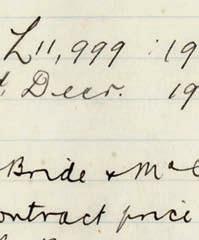 £11,999 : 19
Decr. 19
Bride & McC
ontract price